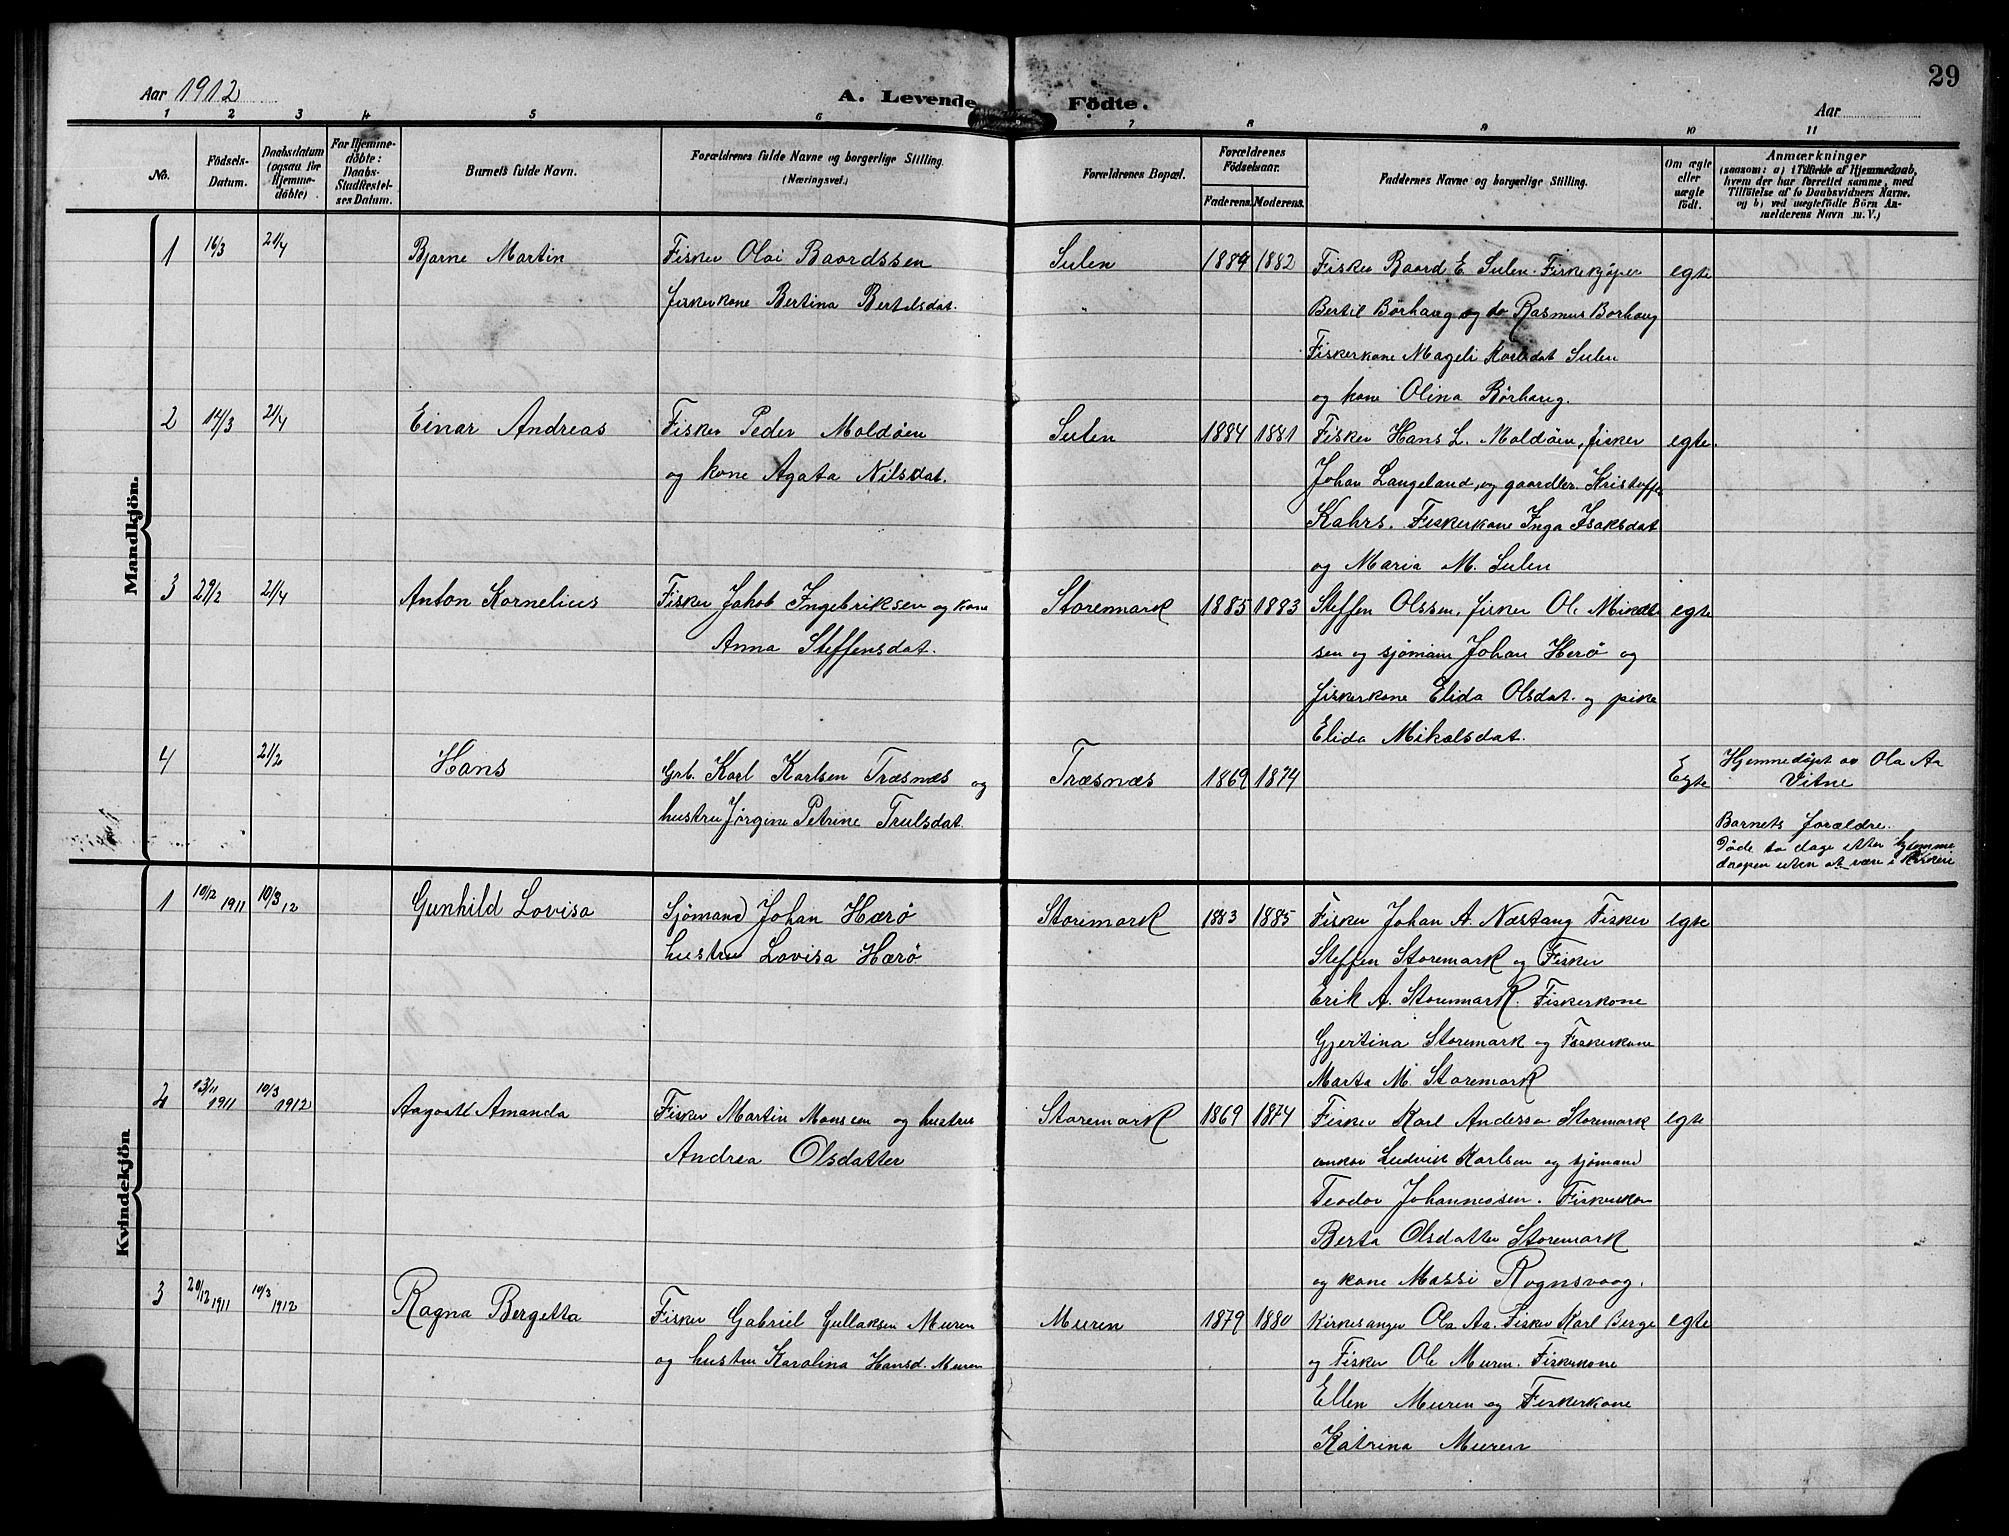 29
Aar 1912
A. Levende Födte.
Aar
1 2 3 4 5 6 7 8 9 10 11
No.
Födsels-Datum.
Daabsdatum (ogsaa for Hjemme-döbte)
For Hjemme-döbte: Daabs-Stadfæstel-ses Datum.
Barnets fulde Navn.
Forældrenes fulde Navne og borgerlige Stilling.
(Næringsvei.)
Forældrenes Bopæl.
Forældrenes Födselsaar.
Faderens. Moderens.
Faddernes Navne og borgerlige Stilling.
Om ægte eller uægte födt.
Anmærkninger
(saasom: a) i Tilfælde af Hjemmedaab,
hvem der har forrettet samme, med
Tilföielse af to Daabsvidners Navne.
og b) ved uægtefödte Börn An-
melderens Navn m. V.)
Mandkjön.
1 16/3 21/4 Bjarne Martin Fisker Olai Baardssen Sulen 1884 1882 Fisker Baard E. Sulen. Fiskekjøper egte
fiskerkone Bertina Bertilsdat. " Bertil Børhaug og do Rasmus Borhaug
Fiskerkone Mageli Karlsdat Sulen
og kone Olina Børhaug.
2 14/3 21/4 Einar Andreas Fisker Peder Moldøen Sulen 1884 1881 Fisker Hans L. Moldøen, fisker egte.
og kone Agata Nilsdat. Johan Langeland, og gaardbr. Kristoffer
Kahrs. Fiskerkone Inga Isaksdat
og Maria M. Sulen
3 29/2 21/4 Anton Kornelius Fisker Jakob Ingebriksen og kone Storemark 1885 1883 Steffen Olssen, fisker Ole Mikal egte
Anna Steffensdat. sen og sjømann Johan Herø og
fiskerkone Elida Olsdat. og pike
Elida Mikalsdat.
4 21/2 Hans Grb. Karl Karlsen Træsnæs og Træsnæs 1869 1874 Egte Hjemmedøpt av Ola Aa
hustru Jørgine Petrine Trulsdat. Vitne
Barnets forældre.
Døde to dage etter hjemme
daapen uten at være i Kirken
Kvindekjön
1 10/12 1911 10/3 12 Gunhild Lovisa Sjømand Johan Hærø Storemark 1883 1885 Fisker Johan A. Næstang Fisker egte
hustru Lovisa Hærø Steffen Storemark og Fisker
Erik A. Storemark. Fiskerkone
Gjertina Storemark og Fiskerkone
Marta M. Storemark
2 13/11 1911 10/3 1912 Aagostl Amanda Fisker Martin Monsen og hustru Storemark 1869 1874 Fisker Karl Anderse Storemark egte
Andrea Olsdatter Ludvik Karlsen og sjømand
Teodor Johannessen. Fiskerkon
Berta Olsdatter Storemark
og kone Massi Rognsvaag.
3 20/12 1911 10/3 1912 Ragna Bergetta Fisker Gabriel Gullaksen Muren Muren 1879 1880 Kirkesanger Ola Aa. Fisker Karl Berge egte
og hustru Karolina Hansd. Muren og Fisker Ole Muren. Fiskerkone
Ellen Muren og Fiskerkone
Katrina Muren